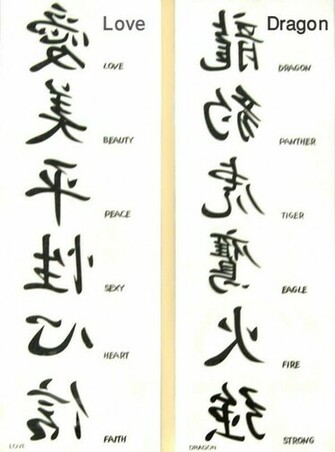 Love
愛 LOVE
美 BEAUTY
平 PEACE
性 SEXY
心 HEART
信 FAITH
LOVE
Dragon
龍 DRAGON
豹 PANTHER
虎 TIGER
鷹 EAGLE
火 FIRE
強 STRONG
DRAGON